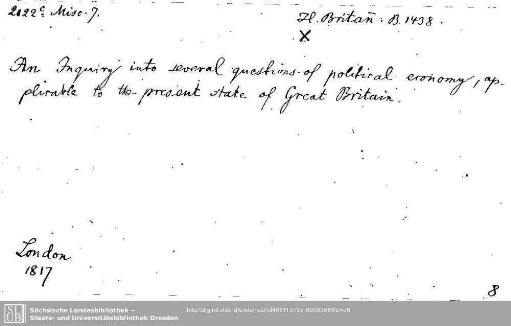 2022ᶜ Misc. 7.
H. Britañ. B. 1438.
X
An Inquiry into several questions of political economy, ap-
plicable to the present state of Great Britain.
London
1817
8
SLUB
Sächsische Landesbibliothek –
Staats- und Universitätsbibliothek Dresden